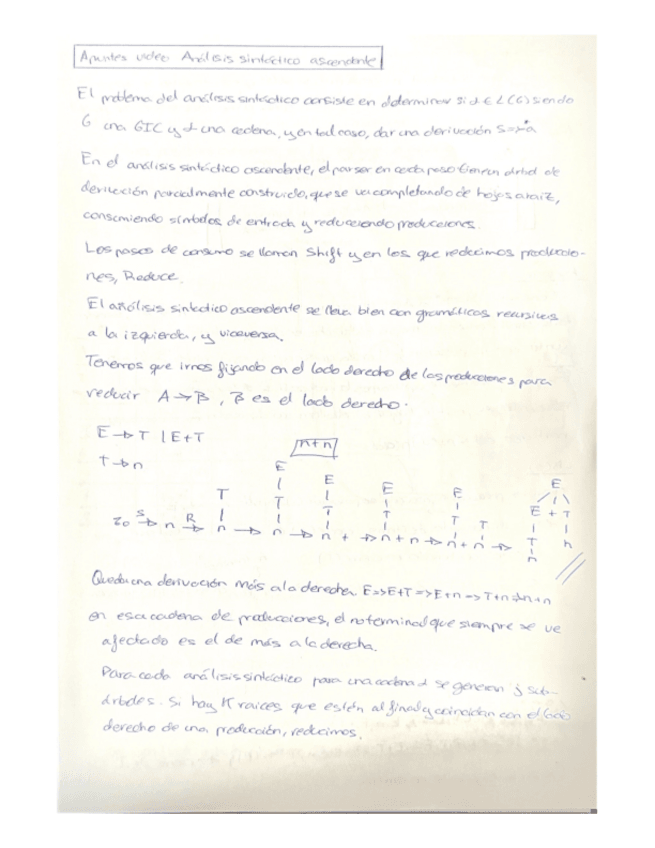 Apuntes video Análisis sintáctico ascendente
El problema del análisis sintáctico consiste en determinar si α ∈ L(G) siendo
G una GIC y α una cadena, y en tal caso, dar una derivación S=>*α
En el análisis sintáctico ascendente, el parser en cada paso tiene un árbol de
derivación parcialmente construido, que se va completando de hojas a raíz,
consumiendo símbolos de entrada y reduciendo producciones.
Los pasos de consumo se llaman Shift y en los que reducimos produccio-
nes, Reduce.
El análisis sintáctico ascendente se lleva bien con gramáticas recursivas
a la izquierda, y viceversa.
Tenemos que irnos fijando en el lado derecho de las producciones para
reducir A → B, B es el lado derecho.
E → T | E+T
n+n
T → n
E
T E E E E E
T T T T T E + T
S R
n → n → n → n + → n + n → n + n → T n
n
Queda una derivación más a la derecha E=>E+T=>E+n=>T+n=>n+n
en esa cadena de producciones, el no terminal que siempre se ve
afectado es el de más a la derecha.
Para cada análisis sintáctico para una cadena α se generan j sub-
árboles. Si hay K raices que estén al final y coincidan con el lado
derecho de una producción, reducimos.